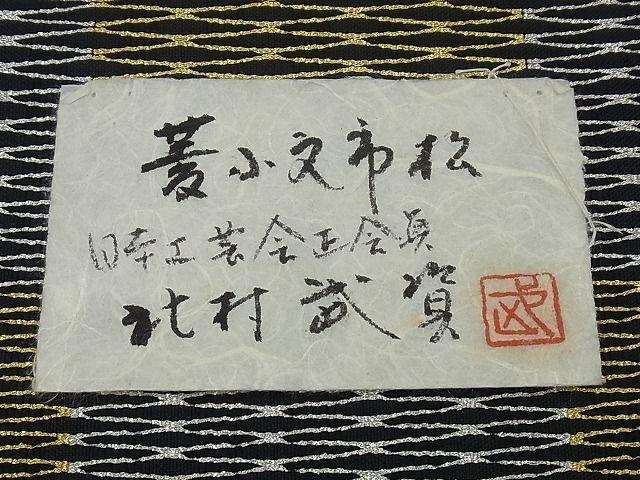 菱小文市松
日本工芸会正会員
北村武資
武